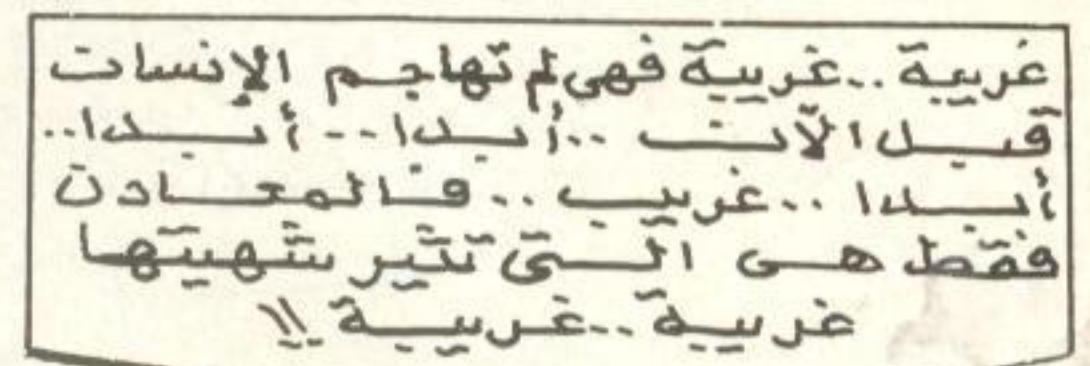 غريبة .. غريبة فهى لم تهاجم الإنسان
قبل الآن .. أبدا .. أبدا ..
أبدا .. غريب .. فالمعادن
فقط هى التى تثير شهيتها
غريبة .. غريبة !!